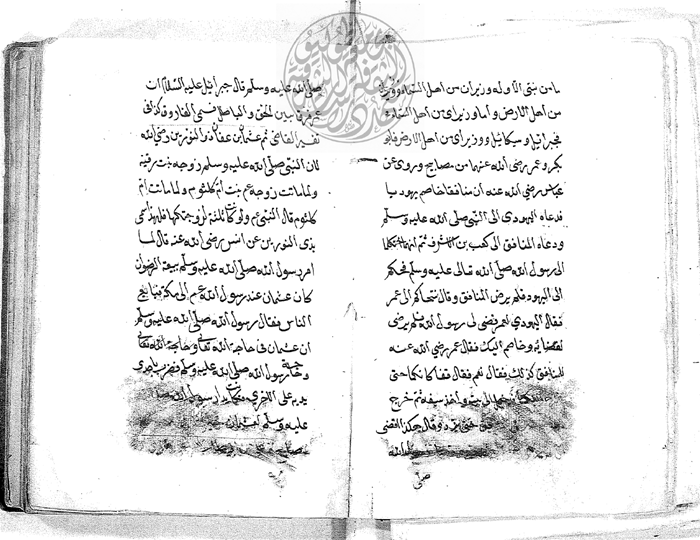 ما من نبي الا وله وزيران من اهل السماء ووزيران
من اهل الارض واما وزيراى من اهل السماء
فجبرائيل وميكائيل ووزيراى من اهل الارض فابو
بكر وعمر رضى الله عنهما من مصابيح وروى عن
عباس رضى الله عنه ان منافقا خاصم يهوديا
فدعاه اليهودى الى النبى صلى الله عليه وسلم
ودعاه المنافق الى كعب بن الاشرف ثم انهما احتكما
الى رسول الله صلى الله تعالى عليه وسلم فحكم
الى اليهود فلم يرض المنافق وقال نتحاكم الى عمر
فقال اليهودى لعمر قضى لى رسول الله فلم يرضى
لقضائه وخاصم اليك فقال عمر رضى الله عنه
للمنافق كذلك فقال نعم فقال قفا مكانكما حتى
اخرج اليكما فدخل البيت واخذ سيفه ثم خرج
حتى برد وقال هكذا اقضى
الله
صلى
صلى الله عليه وسلم قال جبرائيل عليه السلام ان
عمر فرق بين الحق والباطل فسمى الفاروق كذا فى
تفسير القاضى ثم عثمان بن عفان ذو النورين رضى الله
لان النبى صلى الله عليه وسلم زوجه بنت رقية
ولما ماتت زوجه عم بنت ام كلثوم ولما ماتت ام
كلثوم قال النبى عم ولو كانت ثالثة لزوجتكها فلهذا سمى
بذى النورين عن انس رضى الله عنه قال لما
امر رسول الله صلى الله عليه وسلم بيعة الرضوان
كان عثمان عند رسول الله عم الى مكة فبايع
الناس فقال رسول الله صلى الله عليه وسلم
ان عثمان فى حاجة الله تعالى وحاجة الله تعالى
وحاجة رسول الله صلى الله عليه وسلم فضرب باحدى
يديه على الاخرى فكانت يد رسول الله صلى الله
عليه وسلم